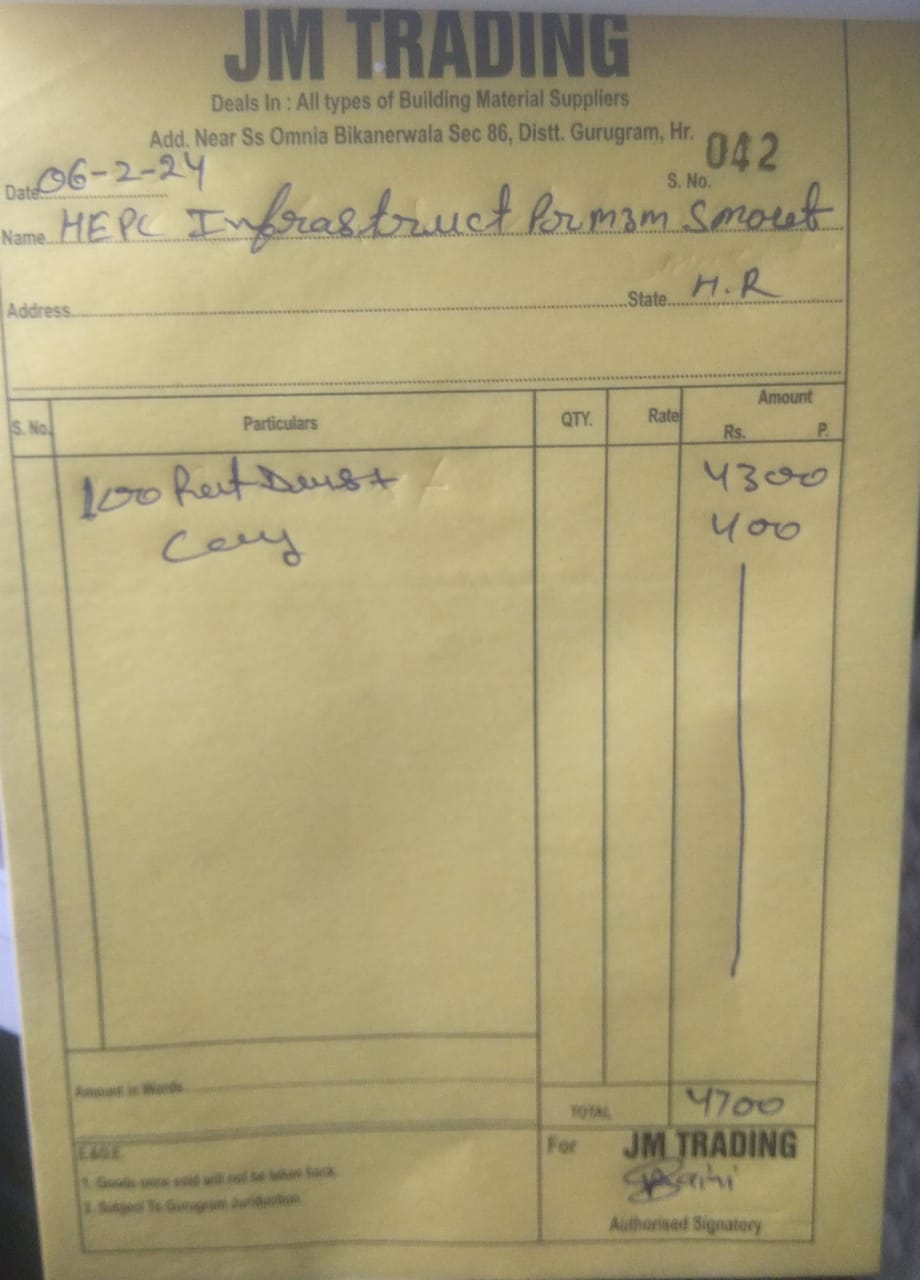 JM TRADING
Deals In : All types of Building Material Suppliers
Add. Near Ss Omnia Bikanerwala Sec 86, Distt. Gurugram, Hr.
042
S. No.
Date 06-2-24
Name HEPC Infrastruct
Address State H.R
S. No. Particulars QTY. Rate Amount
Rs. P.
100 4300
400
Amount in Words
TOTAL 4700
E.&O.E.
1. Goods once sold will not be taken back.
2. Subject To Gurugram Jurisdiction.
For JM TRADING
Authorised Signatory